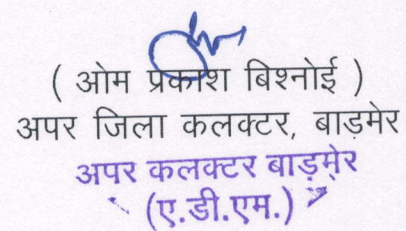 ( ओम प्रकाश बिश्नोई )
अपर जिला कलक्टर, बाड़मेर
अपर कलक्टर बाड़मेर
(ए.डी.एम.)